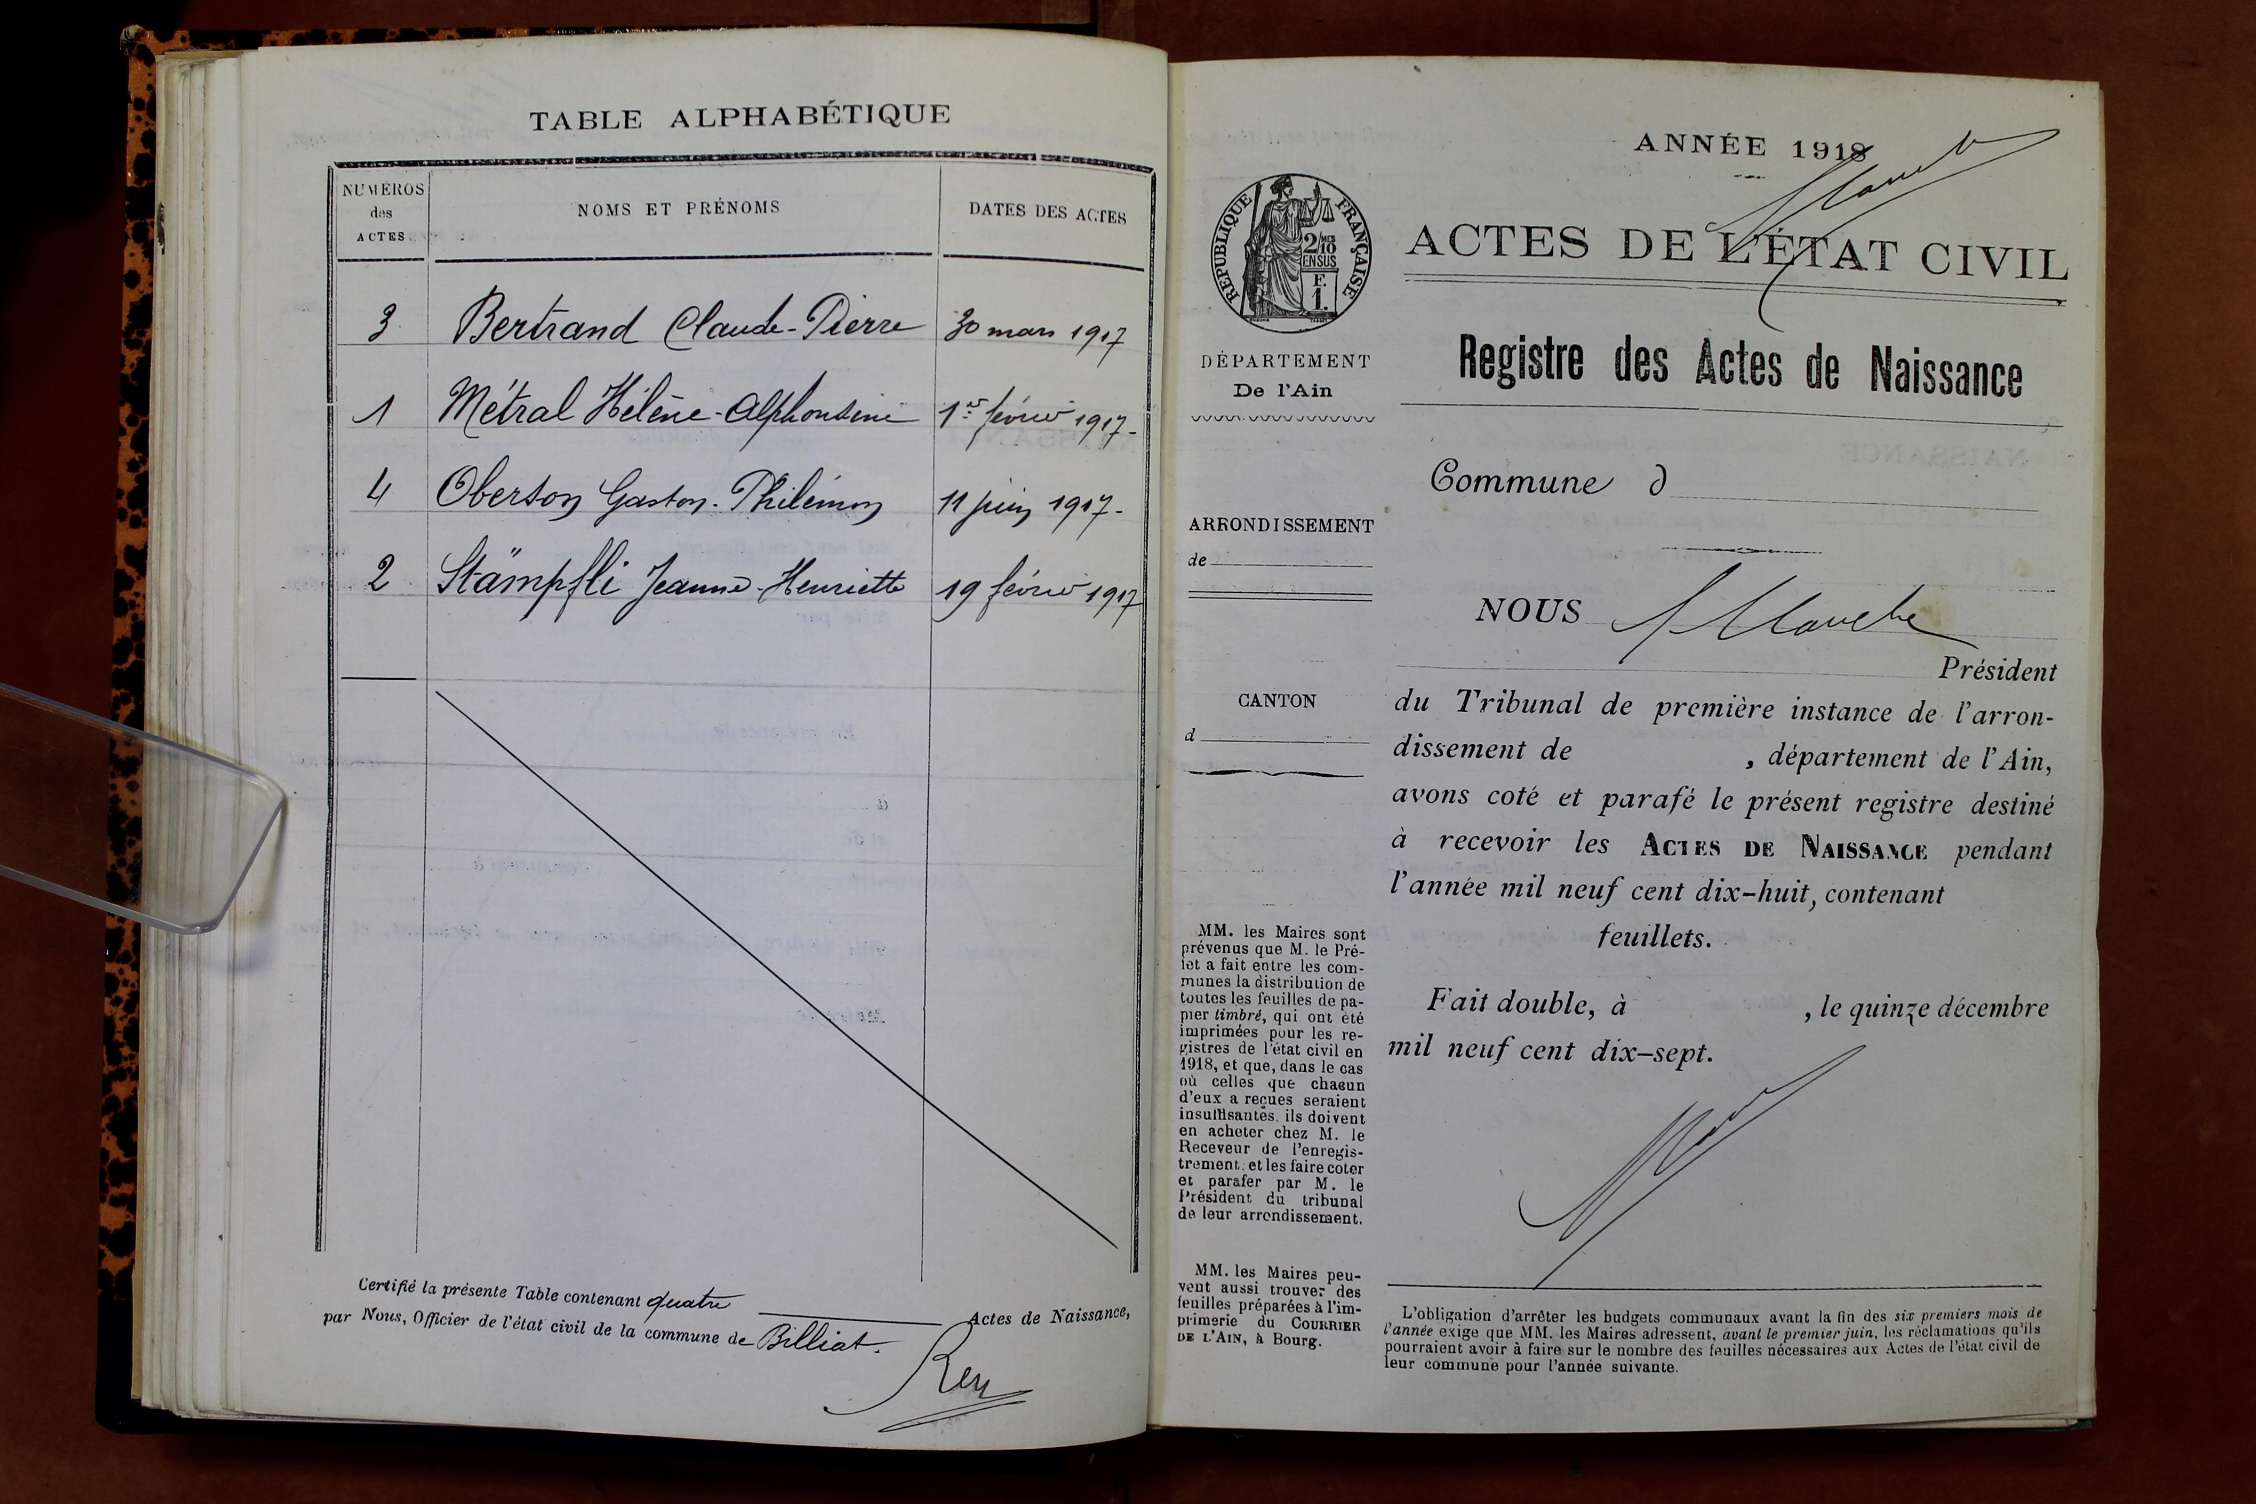 TABLE ALPHABÉTIQUE
NUMÉROS
des
ACTES
NOMS ET PRÉNOMS
DATES DES ACTES
3 Bertrand Claude-Pierre 30 mars 1917
1 Métral Hélène-Alphonsine 1er février 1917-
4 Oberson Gaston-Philémon 11 juin 1917-
2 Stämpfli Jeanne-Henriette 19 février 1917
Certifié la présente Table contenant quatre Actes de Naissance,
par Nous, Officier de l'état civil de la commune de Billiat.
Rey
ANNÉE 1918
RÉPUBLIQUE FRANÇAISE
2/MES
10
EN SUS
F.
1.
ACTES DE L'ÉTAT CIVIL
Registre des Actes de Naissance
DÉPARTEMENT
De l'Ain
Commune d
ARRONDISSEMENT
de
NOUS
Président
CANTON
d
du Tribunal de première instance de l'arron-
dissement de , département de l'Ain,
avons coté et parafé le présent registre destiné
à recevoir les ACTES DE NAISSANCE pendant
l'année mil neuf cent dix-huit, contenant
feuillets.
Fait double, à , le quinze décembre
mil neuf cent dix-sept.
MM. les Maires sont
prévenus que M. le Pré-
fet a fait entre les com-
munes la distribution de
toutes les feuilles de pa-
pier timbré, qui ont été
imprimées pour les re-
gistres de l'état civil en
1918, et que, dans le cas
où celles que chacun
d'eux a reçues seraient
insuffisantes, ils doivent
en acheter chez M. le
Receveur de l'enregis-
trement, et les faire coter
et parafer par M. le
Président du tribunal
de leur arrondissement.
MM. les Maires peu-
vent aussi trouver des
feuilles préparées à l'im-
primerie du COURRIER
DE L'AIN, à Bourg.
L'obligation d'arrêter les budgets communaux avant la fin des six premiers mois de
l'année exige que MM. les Maires adressent, avant le premier juin, les réclamations qu'ils
pourraient avoir à faire sur le nombre des feuilles nécessaires aux Actes de l'état civil de
leur commune pour l'année suivante.